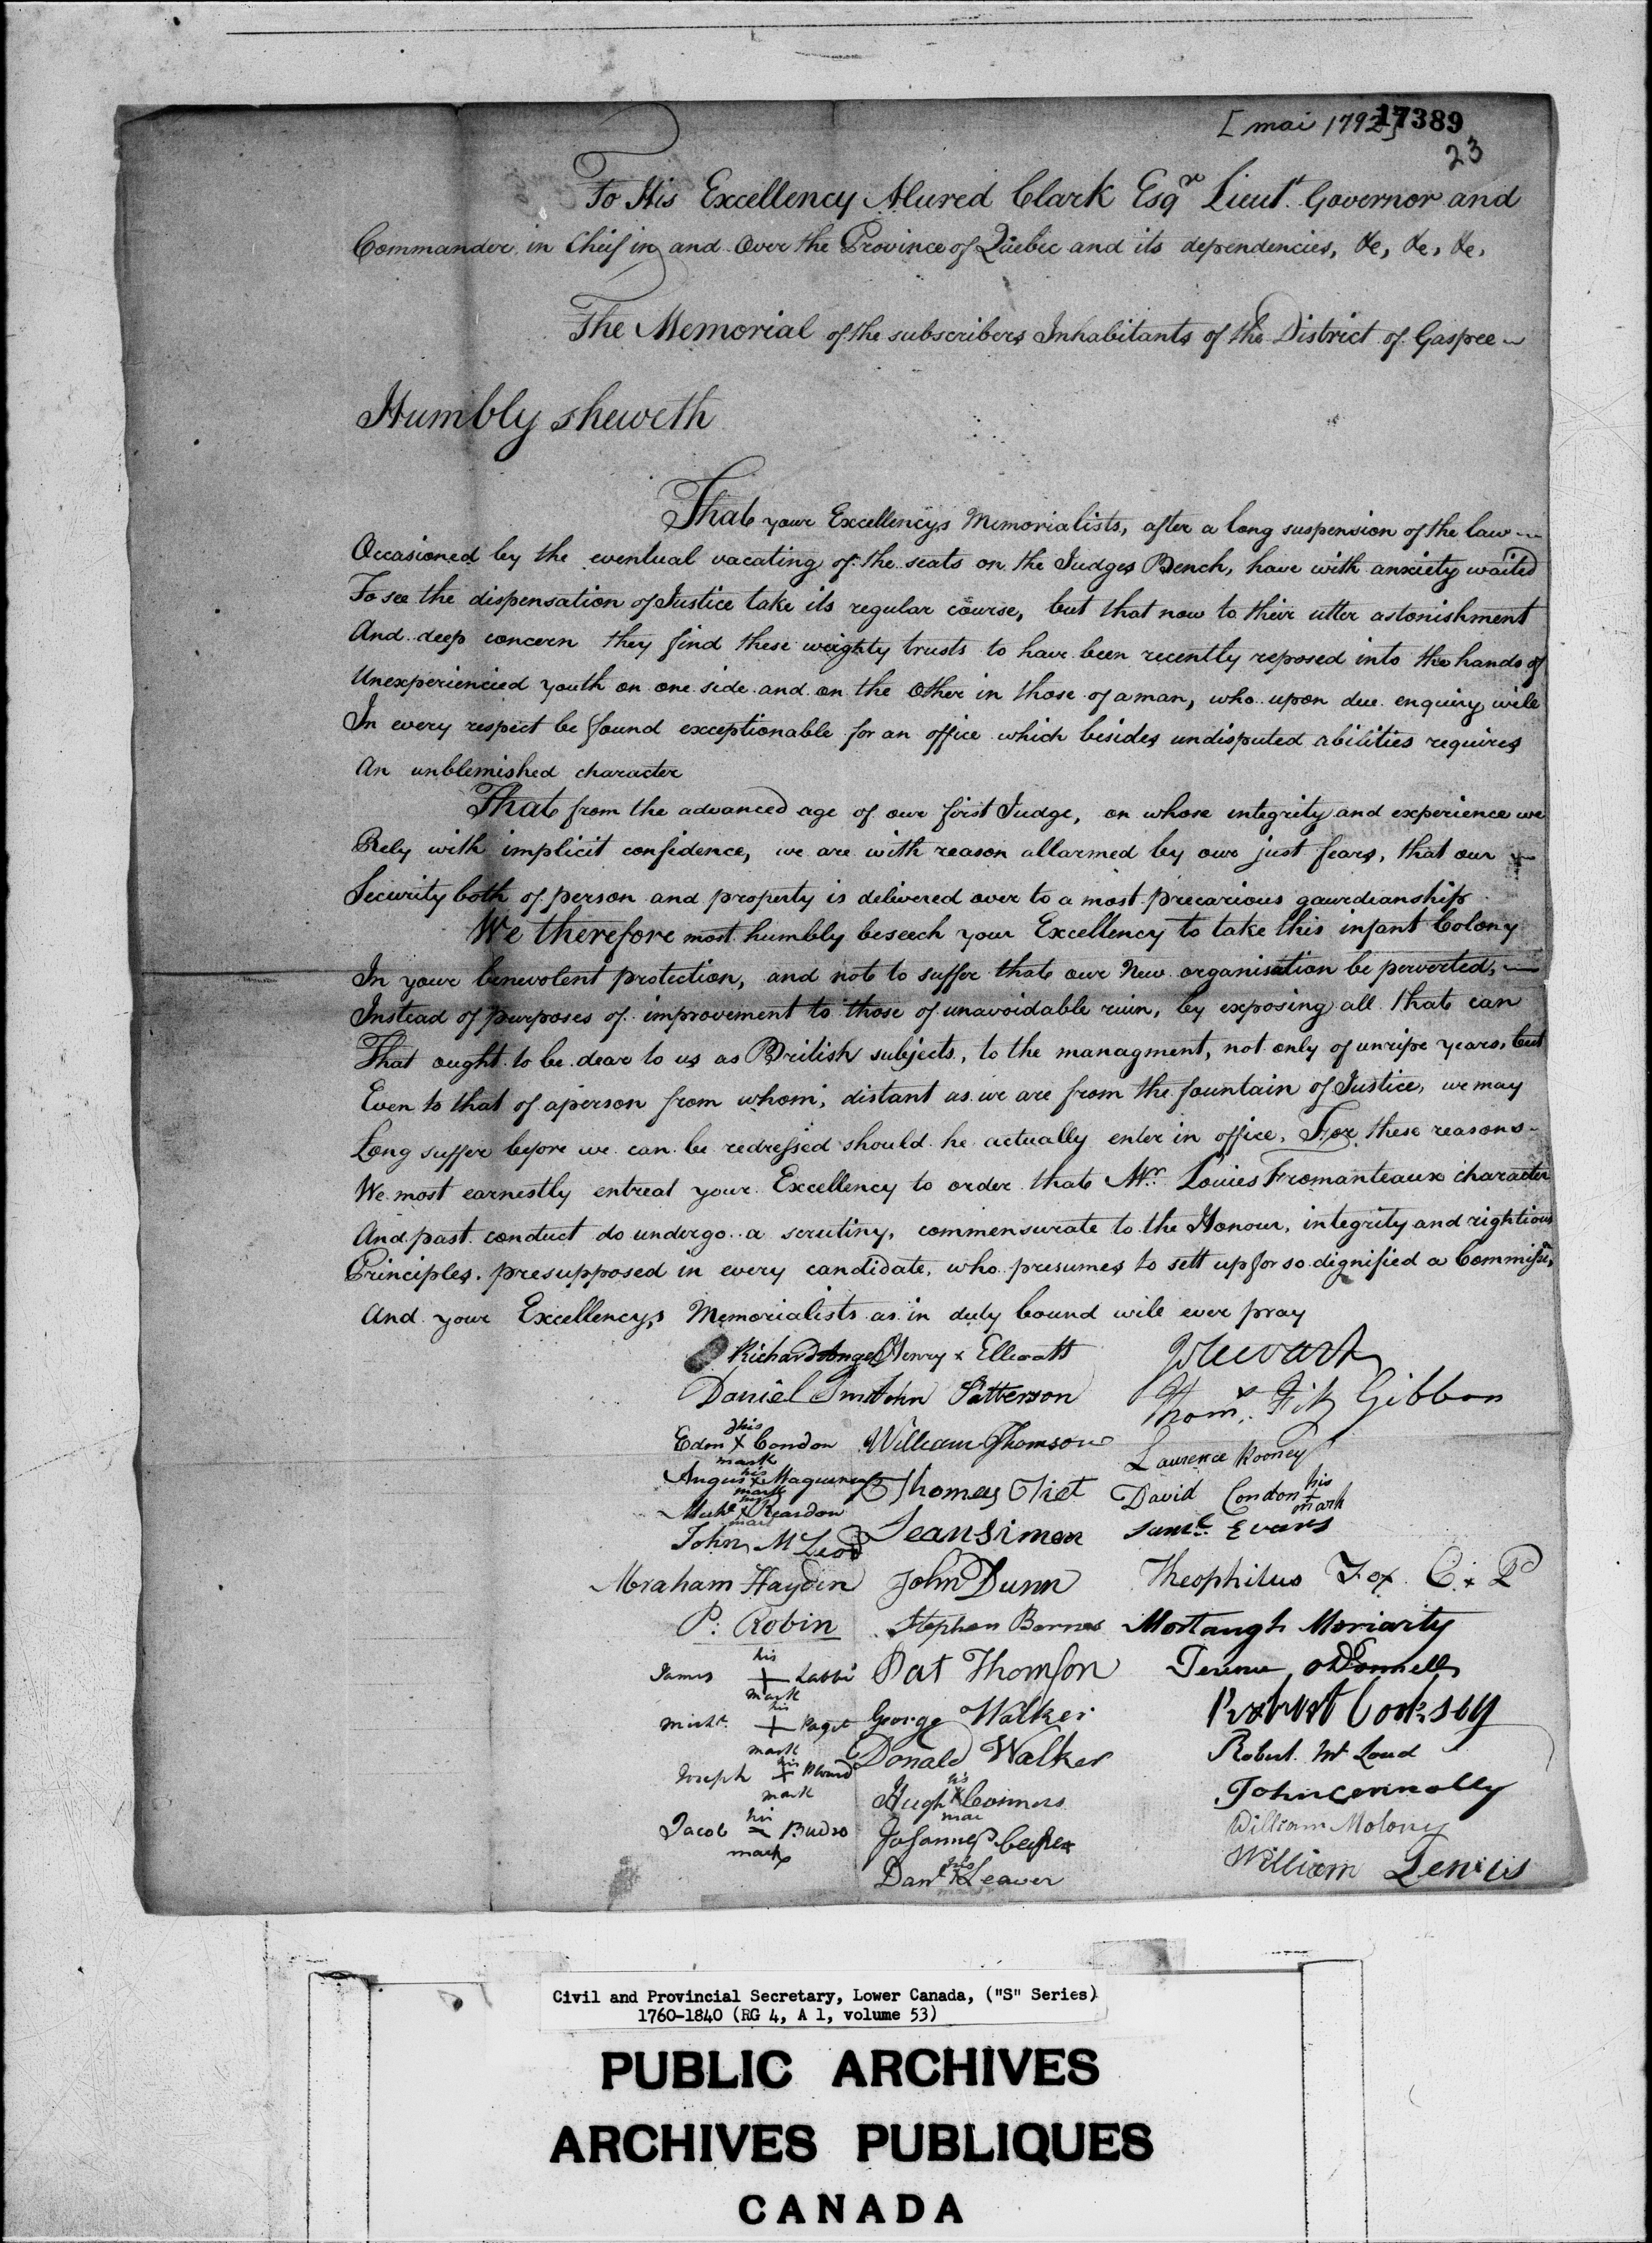 [mai 1792] 17389
23
To His Excellency Alured Clark Esqr Lieut. Governor and
Commander in Cheif in and Over the Province of Quebec and its dependencies, &c, &c, &c,
The Memorial of the subscribers Inhabitants of the District of Gaspee
Humbly sheweth
That your Excellencys Memorialists, after a long suspension of the law
Occasioned by the eventual vacating of the seats on the Judges Bench, have with anxiety waited
To see the dispensation of Justice take its regular course, but that now to their utter astonishment
And deep concern they find these weighty trusts to have been recently reposed into the hands of
Unexperiencied youth on one side and on the Other in those of a man, who upon due enquiry will
In every respect be found exceptionable for an office which besides undisputed abilities requires
An unblemished character
That from the advanced age of our first Judge, on whose integrity and experience we
Rely with implicit confidence, we are with reason allarmed by our just fears, that our
Security both of person and property is delivered over to a most precarious gaurdianship
We therefore most humbly beseech your Excellency to take this infant Colony
In your benevolent protection, and not to suffer that our New organisation be perverted,
Instead of purposes of improvement to those of unavoidable ruin, by exposing all that can
That ought to be dear to us as British subjects, to the managment, not only of unripe years, but
Even to that of a person from whom, distant as we are from the fountain of Justice, we may
Long suffer before we can be redressed should he actually enter in office. For these reasons
We most earnestly entreat your Excellency to order that Mr. Louies Fromanteaux character
And past conduct do undergo a scrutiny, commensurate to the Honour, integrity and rightious
Principles, presupposed in every candidate, who presumes to sett up for so dignified a Commissn,
And your Excellencys Memorialists as in duty bound will ever pray
Richard Henry x Ellwatt J Stewart
Daniel John Patterson Thoms. Fitz Gibbon
Edm his X mark Condon William Thomson Laurence Rooney
Angus his x mark Thomas Tiet David Condon his + mark
Michl his x mark Reardon Jean Simon Saml. Evans
John McLeod
Abraham Hayden John Dunn Theophilus Fox C. x P
P. Robin Stephen Barnes Mortaugh Moriarty
James his + mark Labbi Pat Thomson Terence O Donnell
Michl. his + mark Paget George Walker Robert Cooksey
Joseph his + mark Donald Walker Robert Mc Loud
Hugh his x mar Conners John Connolly
Jacob his mark Budro William Molony
Danl his x mark Leaver William Lewis
Civil and Provincial Secretary, Lower Canada, ("S" Series)
1760-1840 (RG 4, A 1, volume 53)
PUBLIC ARCHIVES
ARCHIVES PUBLIQUES
CANADA